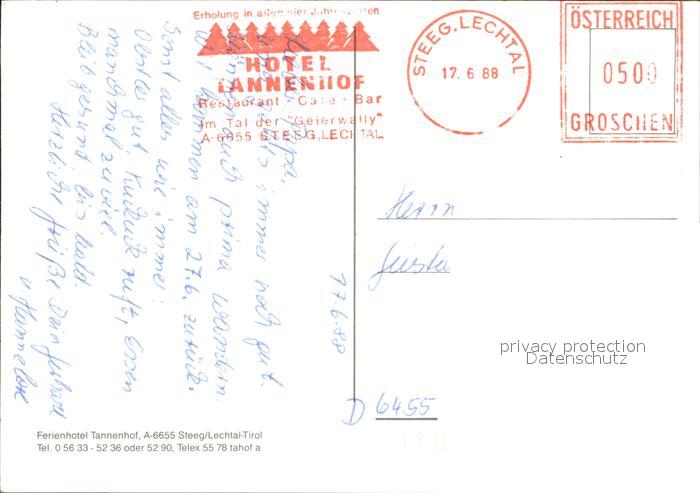 Erholung in allen vier Jahreszeiten
HOTEL
TANNENHOF
Restaurant - Cafe - Bar
Im Tal der "Geierwally"
A-6655 STEEG, LECHTAL
STEEG, LECHTAL
17. 6 88
ÖSTERREICH
0500
GROSCHEN
immer noch gut.
prima wandern.
Wir kommen am 27.6. zurück.
Sonst alles wie immer:
Obstler gut, Kuckuck ruft, Essen
manchmal zuviel.
Bleib gesund, bis bald.
Herzliche Grüße Dein
u. Hannelore
17.6.88
Herrn
D 6455
privacy protection
Datenschutz
Ferienhotel Tannenhof, A-6655 Steeg/Lechtal-Tirol
Tel. 0 56 33 - 52 36 oder 52 90, Telex 55 78 tahof a